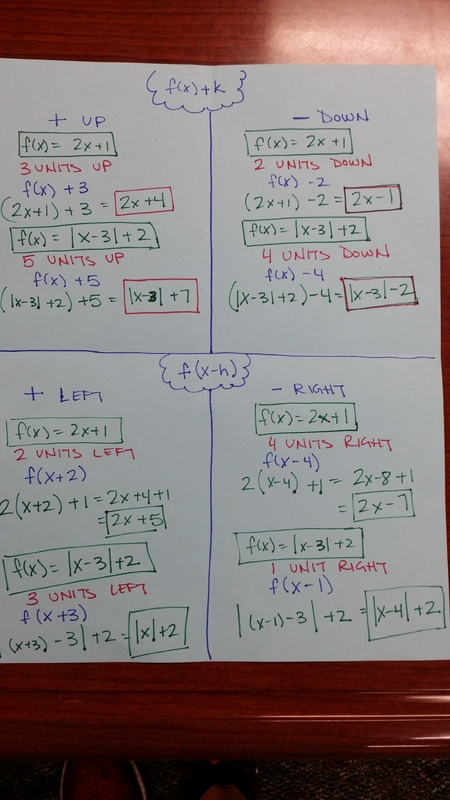 f(x)+k
+ UP
f(x) = 2x+1
3 UNITS UP
f(x) +3
(2x+1) + 3 = 2x+4
f(x) = |x-3| + 2
5 UNITS UP
f(x) +5
(|x-3| +2) +5 = |x-3| + 7
- DOWN
f(x) = 2x+1
2 UNITS DOWN
f(x) -2
(2x+1) -2 = 2x-1
f(x) = |x-3|+2
4 UNITS DOWN
f(x) -4
(|x-3|+2)-4 = |x-3|-2
f(x-h)
+ LEFT
f(x) = 2x+1
2 UNITS LEFT
f(x+2)
2(x+2) +1 = 2x+4+1
= 2x+5
f(x) = |x-3| +2
3 UNITS LEFT
f(x+3)
(x+3) -3| +2 = |x|+2
- RIGHT
f(x) = 2x+1
4 UNITS RIGHT
f(x-4)
2(x-4) +1 = 2x-8+1
= 2x-7
f(x) = |x-3| +2
1 UNIT RIGHT
f(x-1)
|(x-1)-3| +2 = |x-4| +2